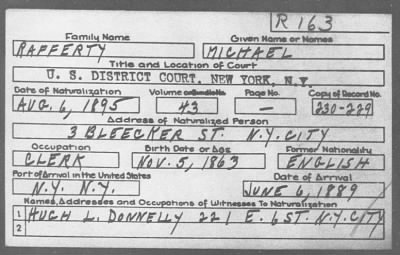 R 163
Family Name Given Name or Names
RAFFERTY MICHAEL
Title and Location of Court
U. S. DISTRICT COURT, NEW YORK, N.Y.
Date of Naturalization Volume or Bundle No. Page No. Copy of Record No.
AUG. 6, 1895 43 — 230-229
Address of Naturalized Person
3 BLEECKER ST. N.Y. CITY
Occupation Birth Date or Age Former Nationality
CLERK NOV. 5, 1863 ENGLISH
Port of Arrival in the United States Date of Arrival
N.Y. N.Y. JUNE 6, 1889
Names, Addresses and Occupations of Witnesses To Naturalization
1 HUGH L. DONNELLY 221 E. 6 ST. N.Y. CITY
2